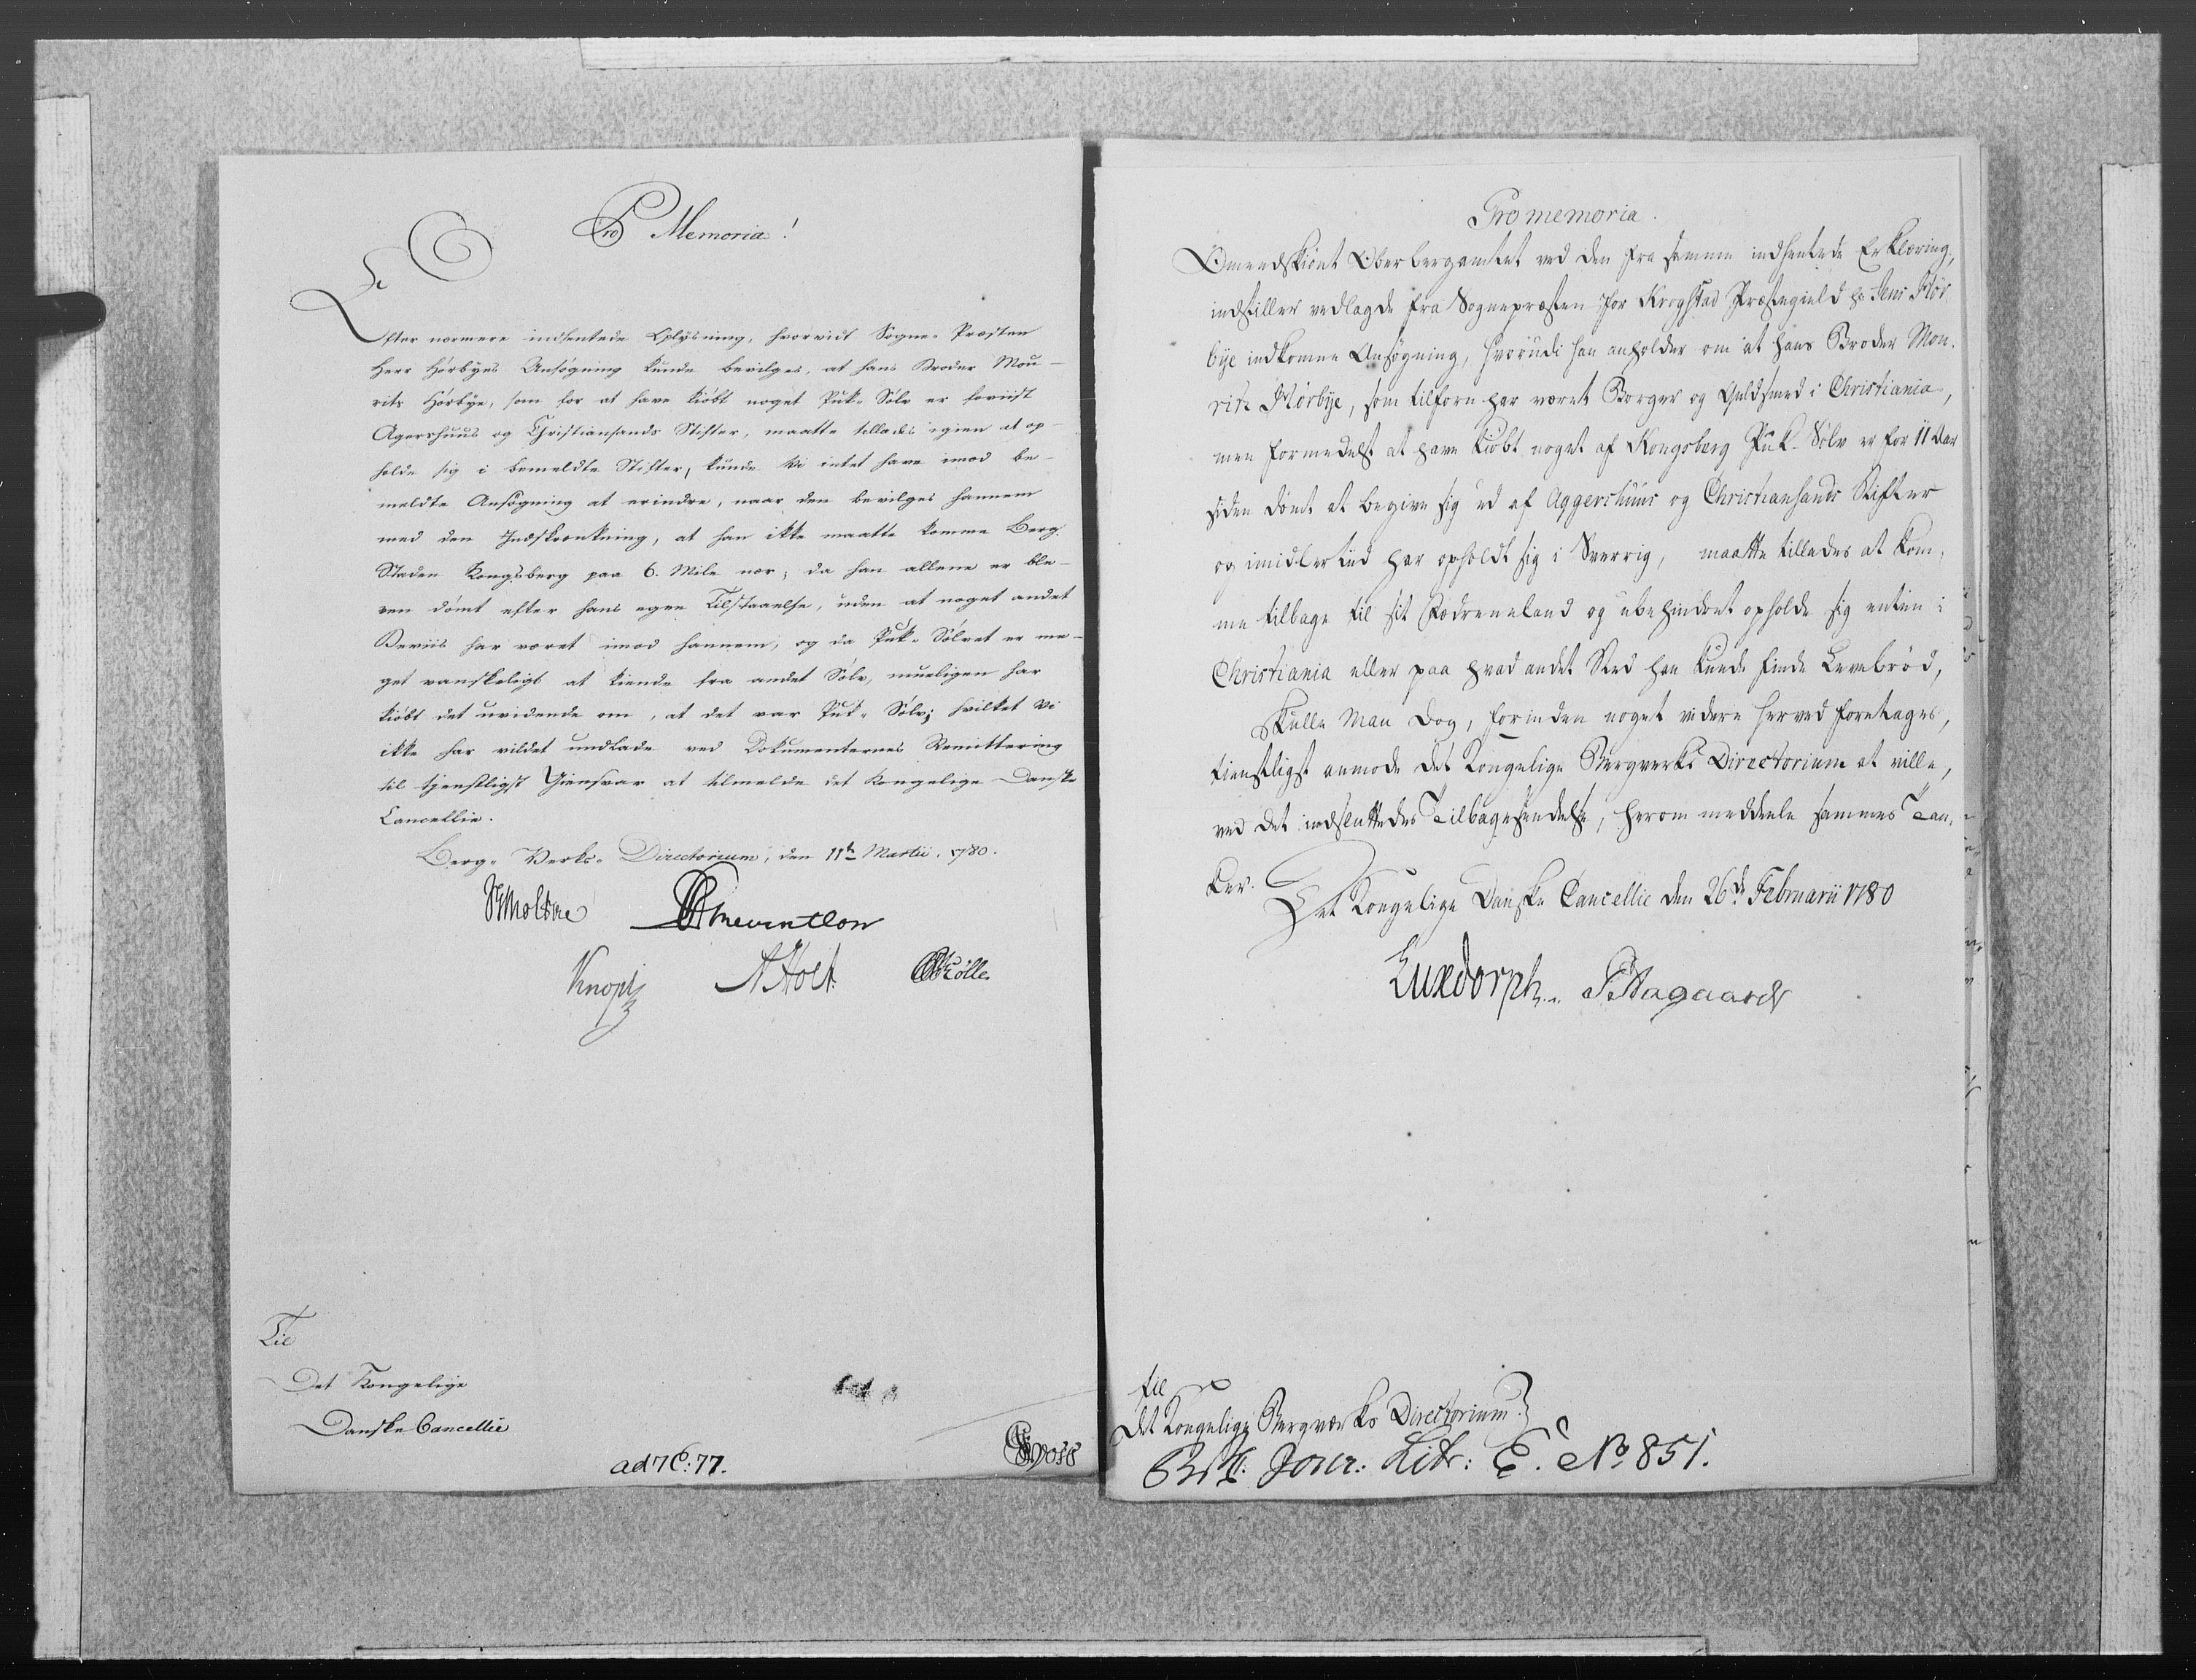 Pro Memoria!
Efter nærmere indhentede Oplysning, hvorvidt Sogne-Præsten
Herr Hørbyes Ansøgning kunde bevilges, at hans Broder Mou-
rits Hørbye, som for at have kiøbt noget Puk-Sølv er forviist
Agershuus og Christiansands Stifter, maatte tillades igien at op-
holde sig i bemeldte Stifter, kunde Vi intet have imod be-
meldte Ansøgning at erindre, naar den bevilges hannem
med den Indskrænkning, at han ikke maatte komme Berg-
Staden Kongsberg paa 6. Mile nær; da han allene er ble-
ven dømt efter hans egen Tilstaaelse, uden at noget andet
Beviis har været imod hannem, og da Puk-Sølvet er me-
get vanskeligt at kiende fra andet Sølv, mueligen har
kiøbt det uvidende om, at det var Puk-Sølv; hvilket Vi
ikke har vildet undlade ved Dokumenternes Remittering
til tjenstligst Giensvar at tilmelde det Kongelige Danske
Cancellie.
Berg-Verks-Directorium, den 11te Martii. 1780.
Moltke Reventlou
Knoph A Holt Kølle
Til
Det Kongelige
Danske Cancellie
ad 76:77.
Promemoria.
Omendskiønt Oberbergamtet ved den fra samme indhentede Erklæring,
indstiller vedlagde fra Sognepræsten for Krogstad Præstegield hr Jens Hør-
bye indkomne Ansøgning, hvorudi han anholder om at hans Broder Mou-
ritz Hørbye, som tilforn har været Borger og Guldsmed i Christiania,
men formedelst at have kiøbt noget af Kongsberg Puk-Sølv er for 11 Aar
siden dømt at begive sig ud af Aggershuus og Christiansands Stifter
og imidlertiid har opholdt sig i Sverrig, maatte tillades at kom-
me tilbage til sit Fædreneland og ubehindret opholde sig enten i
Christiania eller paa hvad andet Sted han kunde finde Levebrød,
Skulle Man dog, forinden noget videre herved foretages,
tienstligst anmode det Kongelige Bergverks Directorium at ville,
ved det indsluttedes Tilbagesendelse, herom meddeele sammes Tan-
ker.
Det Kongelige Danske Cancellie den 26de Februarii 1780
Luxdorph. P. Aagaard
til
Det Kongelige Bergværks Directorium.
Jour: Litr: E. No 851.